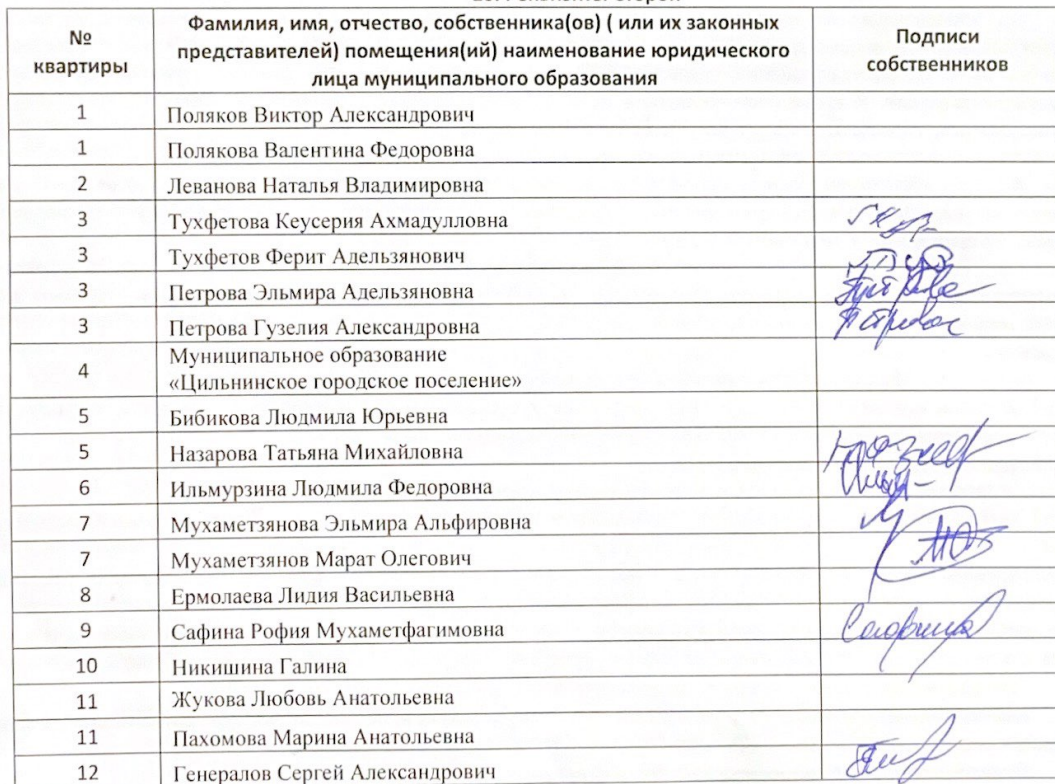 №
квартиры
Фамилия, имя, отчество, собственника(ов) ( или их законных
представителей) помещения(ий) наименование юридического
лица муниципального образования
Подписи
собственников
1 Поляков Виктор Александрович
1 Полякова Валентина Федоровна
2 Леванова Наталья Владимировна
3 Тухфетова Кеусерия Ахмадулловна
3 Тухфетов Ферит Адельзянович
3 Петрова Эльмира Адельзяновна
3 Петрова Гузелия Александровна Петрова
4 Муниципальное образование
«Цильнинское городское поселение»
5 Бибикова Людмила Юрьевна
5 Назарова Татьяна Михайловна
6 Ильмурзина Людмила Федоровна
7 Мухаметзянова Эльмира Альфировна
7 Мухаметзянов Марат Олегович
8 Ермолаева Лидия Васильевна
9 Сафина Рофия Мухаметфагимовна
10 Никишина Галина
11 Жукова Любовь Анатольевна
11 Пахомова Марина Анатольевна
12 Генералов Сергей Александрович